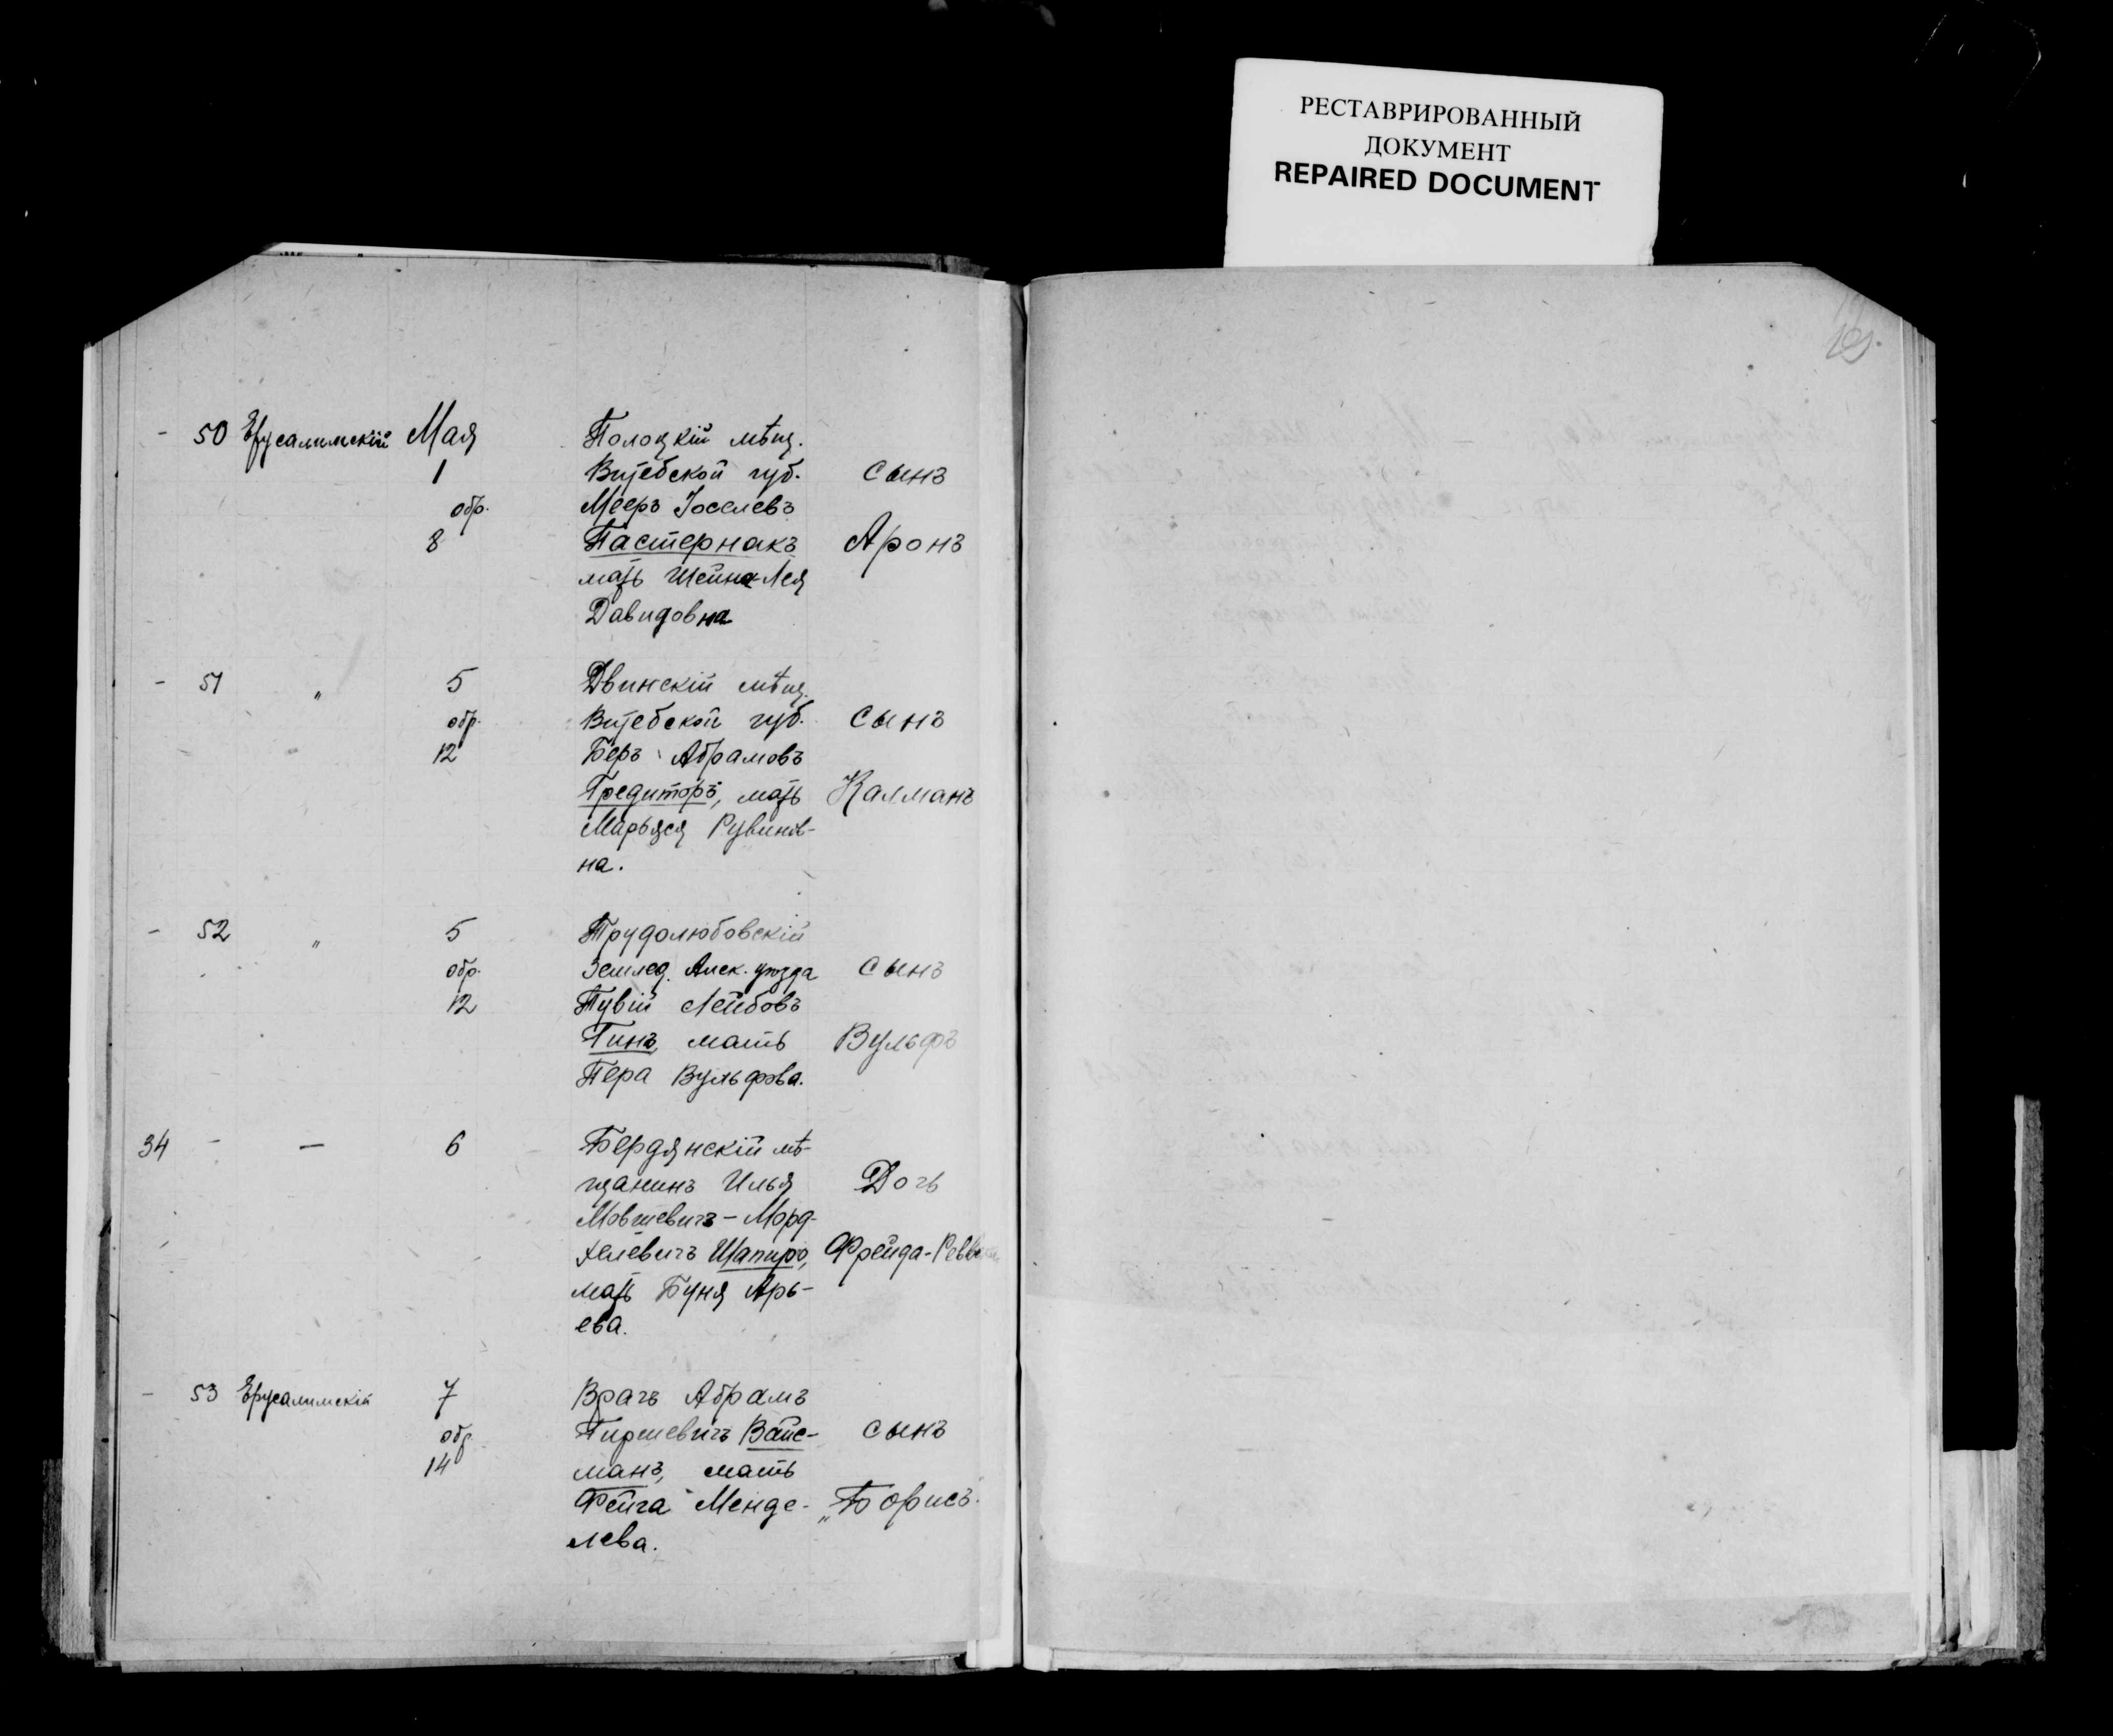 РЕСТАВРИРОВАННЫЙ
ДОКУМЕНТ
REPAIRED DOCUMENT
- 50 Ерусалимскій Мая Полоцкій мѣщ.
1 Витебской губ. сынъ
обр. Мееръ Іоселевъ
8 Пастернакъ Аронъ
мать Шейна-Лея
Давидовна
- 51 " 5 Двинскій мѣщ.
обр. Витебской губ. сынъ
12 Беръ Абрамовъ
Гредиторъ, мать Калманъ
Марьяся Рувинов-
на.
- 52 " 5 Трудолюбовскій
обр. землед. Алек. уѣзда сынъ
12 Тувій Лейбовъ
Гинъ, мать Вульфъ
Пера Вульфова.
34 - — 6 Бердянскій мѣ-
щанинъ Илья Дочь
Мовшевичъ-Морд-
хелевичъ Шапиро, Фрейда-
мать Буня Арь-
ева.
- 53 Ерусалимскій 7 Врачъ Абрамъ
обр. Гиршевичъ Вайс- сынъ
14 манъ, мать
Фейга Менде- „Борисъ.
лева.